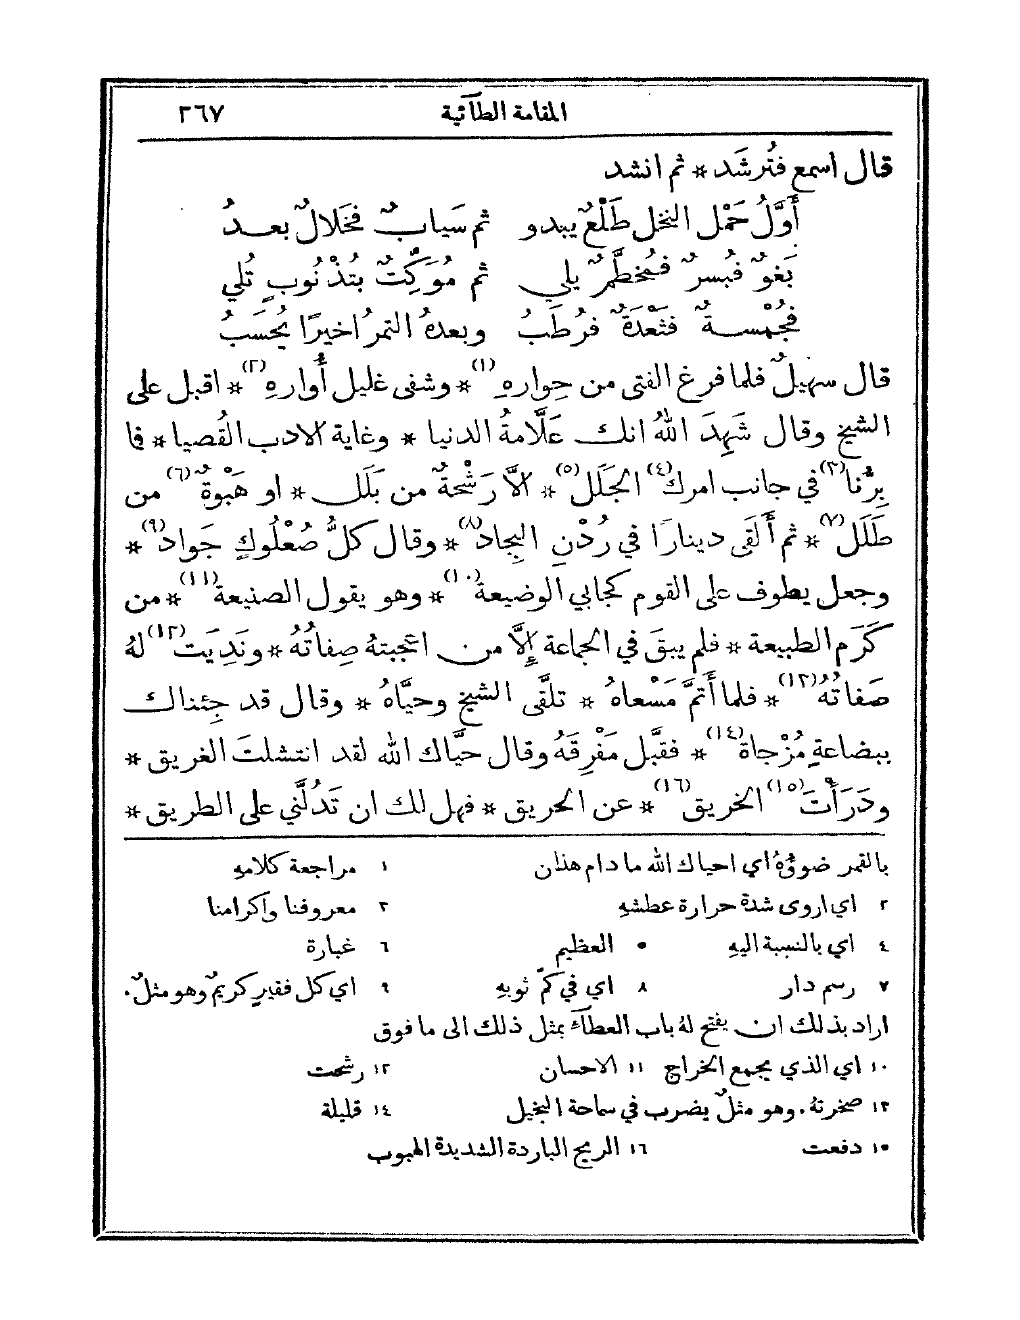 المقامة الطآئية ٣٦٧
قال اسمع فتُرشَد * ثم انشد
أَوَّلُ حَمْل النخل طَلْعٌ يبدو ثم سَيابٌ فخَلالٌ بعدُ
بَغوٌ فبُسرٌ فمُخطَّمٌ يلي ثم مُوَكِّتٌ بتُذْنُوبٍ تُلي
فجُمْسةٌ فثَعْدَةٌ فرُطَبُ وبعدهُ التمرُ اخيرًا يُحسَبُ
قال سهيلٌ فلما فرغ الفتى من حِوارهِ (١) * وشفى غليل أُوارهِ (٢) * اقبل على
الشيخ وقال شَهِدَ اللهُ انك عَلَّامةُ الدنيا * وغاية الادب القُصيا * فما
بِرُّنا (٣) في جانب امرك (٤) الجَلَل (٥) * الَّا رَشْحةٌ من بَلَل * او هَبْوةٌ (٦) من
طَلَل (٧) * ثم أَلقَى دينارًا في رُدْنِ البِجاد (٨) * وقال كلُّ صُعْلُوكٍ جَواد (٩) *
وجعل يطوف على القوم كجابي الوضيعة (١٠) * وهو يقول الصنيعة (١١) * من
كَرَم الطبيعة * فلم يبقَ في الجماعة إلَّا من اعجبتهُ صِفاتُهُ * ونَدِيَت (١٢) لهُ
صَفاتُهُ (١٣) * فلما أَتمَّ مَسْعاهُ * تلقَّى الشيخ وحيَّاهُ * وقال قد جِئناك
ببضاعةٍ مُزْجاة (١٤) * فقبَّل مَفْرِقَهُ وقال حيَّاك الله لقد انتشلتَ الغريق *
ودَرَأْتَ (١٥) الخريق (١٦) * عن الحريق * فهل لك ان تَدُلَّني على الطريق *
بالقمر ضوؤهُ اي احياك الله ما دام هذان ١ مراجعة كلامهِ
٢ اي اروى شدة حرارة عطشهِ ٣ معروفنا واكرامنا
٤ اي بالنسبة اليهِ ٥ العظيم ٦ غبارة
٧ رسم دار ٨ اي في كمّ ثوبهِ ٩ اي كل فقيرٍ كريمٌ وهو مثلٌ.
اراد بذلك ان يفتح لهُ باب العطآء بمثل ذلك الى ما فوق
١٠ اي الذي يجمع الخراج ١١ الاحسان ١٢ رشحت
١٣ صخرتهُ. وهو مثلٌ يضرب في سماحة البخيل ١٤ قليلة
١٥ دفعت ١٦ الريح الباردة الشديدة الهبوب